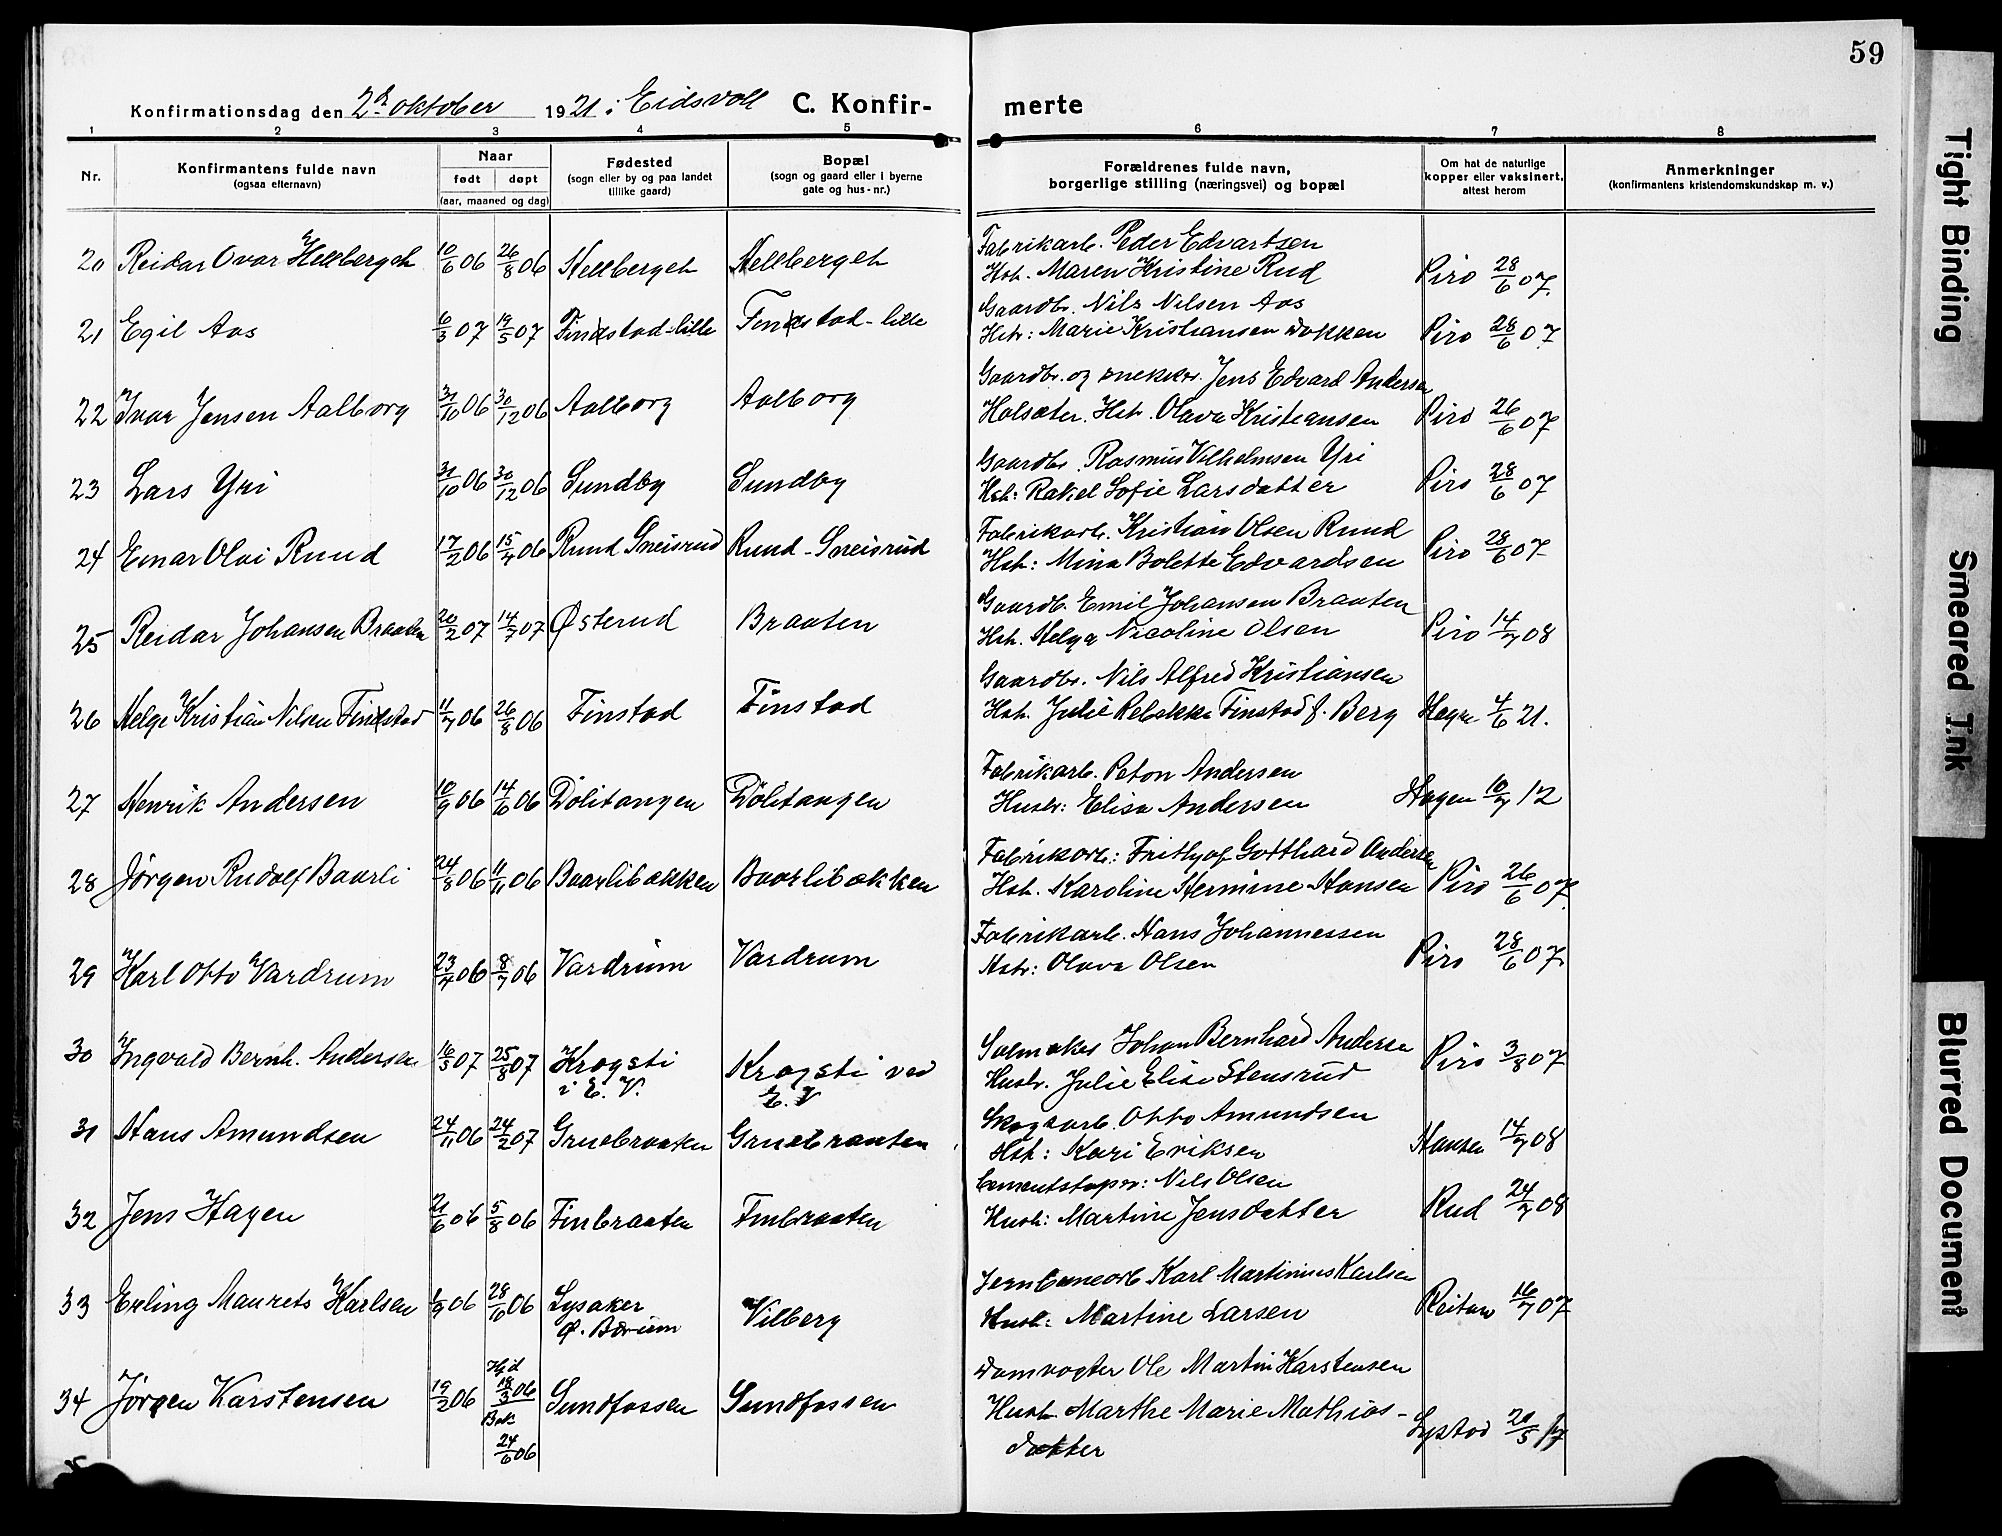 59
Konfirmationsdag den 2d oktober 1921 i Eidsvoll C. Konfir-merte
1 2 3 4 5 6 7 8
Nr.
Konfirmantens fulde navn
(ogsaa efternavn)
Naar
født døpt
(aar, maaned og dag)
Fødested
(sogn eller by og paa landet
tillike gaard)
Bopæl
(sogn og gaard eller i byerne
gate og hus-nr.)
Forældrenes fulde navn,
borgerlige stilling (næringsvei) og bopæl
Om hat de naturlige
kopper eller vaksinert,
attest herom
Anmerkninger
(konfirmantens kristendomskundskap m. v.)
Fabrikarb. Peder Edvartsen
20 Reidar Ovar Hellberget 10/6 06 26/8 06 Hellberget Hellberget Hst. Maren Kristine Rud Piro 28/6 07.
Gaardbr. Nils Nilsen Aas
21 Egil Aas 6/3 07 19/5 07 Finstad-lille Finstad-lille Hstr: Marie Kristiansen Dokken Piro 28/6 07
Gaardbr. og snekker. Jens Edvard Andersen
22 Ivar Jensen Aalborg 31/10 06 30/12 06 Aalborg Aalborg Holsæter. Hstr. Olava Kristiansen Piro 26/6 07
Gaardbr. Rasmus Vilhelmsen Yri
23 Lars Yri 31/10 06 30/12 06 Sundby Sundby Hst: Rakel Sofie Larsdatter Piro 28/6 07
Fabrikarb. Kristian Olsen Ruud
24 Einar Olai Ruud 17/2 06 15/4 06 Ruud Sneisrud Ruud-Sneisrud Hst: Mina Bolette Edvardsen Piro 28/6 07
Gaardb. Emil Johansen Braaten
25 Reidar Johansen Braaten 20/2 07 14/7 07 Østerud Braaten Hst. Helga Nicoline Olsen Piro 14/7 08
Gaardbr. Nils Alfred Kristiansen
26 Helge Kristian Nilsen Finstad 11/7 06 26/8 06 Finstad Finstad Hst. Julie Rebekka Finstad f. Berg Hegre 4/6 21.
Fabrikarb. Peton Andersen
27 Henrik Andersen 10/9 06 14/10 06 Dölitangen Dölitangen Hustr: Elisa Andersen Hagen 10/7 12
Fabrikarb: Frithjof Gotthard Andersen
28 Jörgen Rudolf Baarli 24/8 06 11/11 06 Baarlibakken Baarlibakken Hst. Karoline Hermine Hansen Piro 26/6 07.
Fabrikarb. Hans Johannessen
29 Karl Otto Vardrum 23/4 06 8/7 06 Vardrum Vardrum Hstr: Olava Olsen Piro 28/6 07.
Salmaker Johan Bernhard Anderse
30 Ingvald Bernh. Andersen 16/5 07 25/8 07 Krogsti Krogsti ved Hustr. Julie Elise Stensrud Piro 3/8 07
i E. V. E. V
Skogsarb. Otto Amundsen
31 Hans Amundsen 24/11 06 24/2 07 Gruebraaten Gruebraaten Hst: Kari Eriksen Hansen 14/7 08
Cementstøper: Nils Olsen
32 Jens Hagen 21/6 06 5/8 06 Finbraaten Finbraaten Hustr: Martine Jensdatter Rud 24/7 08
Jernbanearb Karl Martinius Karlsen
33 Erling Maurets Karlsen 1/9 06 28/10 06 Lysaker Vilberg Hustr: Martine Larsen Reitan 16/7 07
Ø. Bærum
Damvogter Ole Martin Karstensen
34 Jørgen Karstensen 19/2 06 Hjd 18/3 06 Sundfossen Sundfossen Hustr. Marthe Marie Mathias-
Bek 24/6 06 datter Lystad 20/5 17
Tight Binding
Smeared Ink
Blurred Document